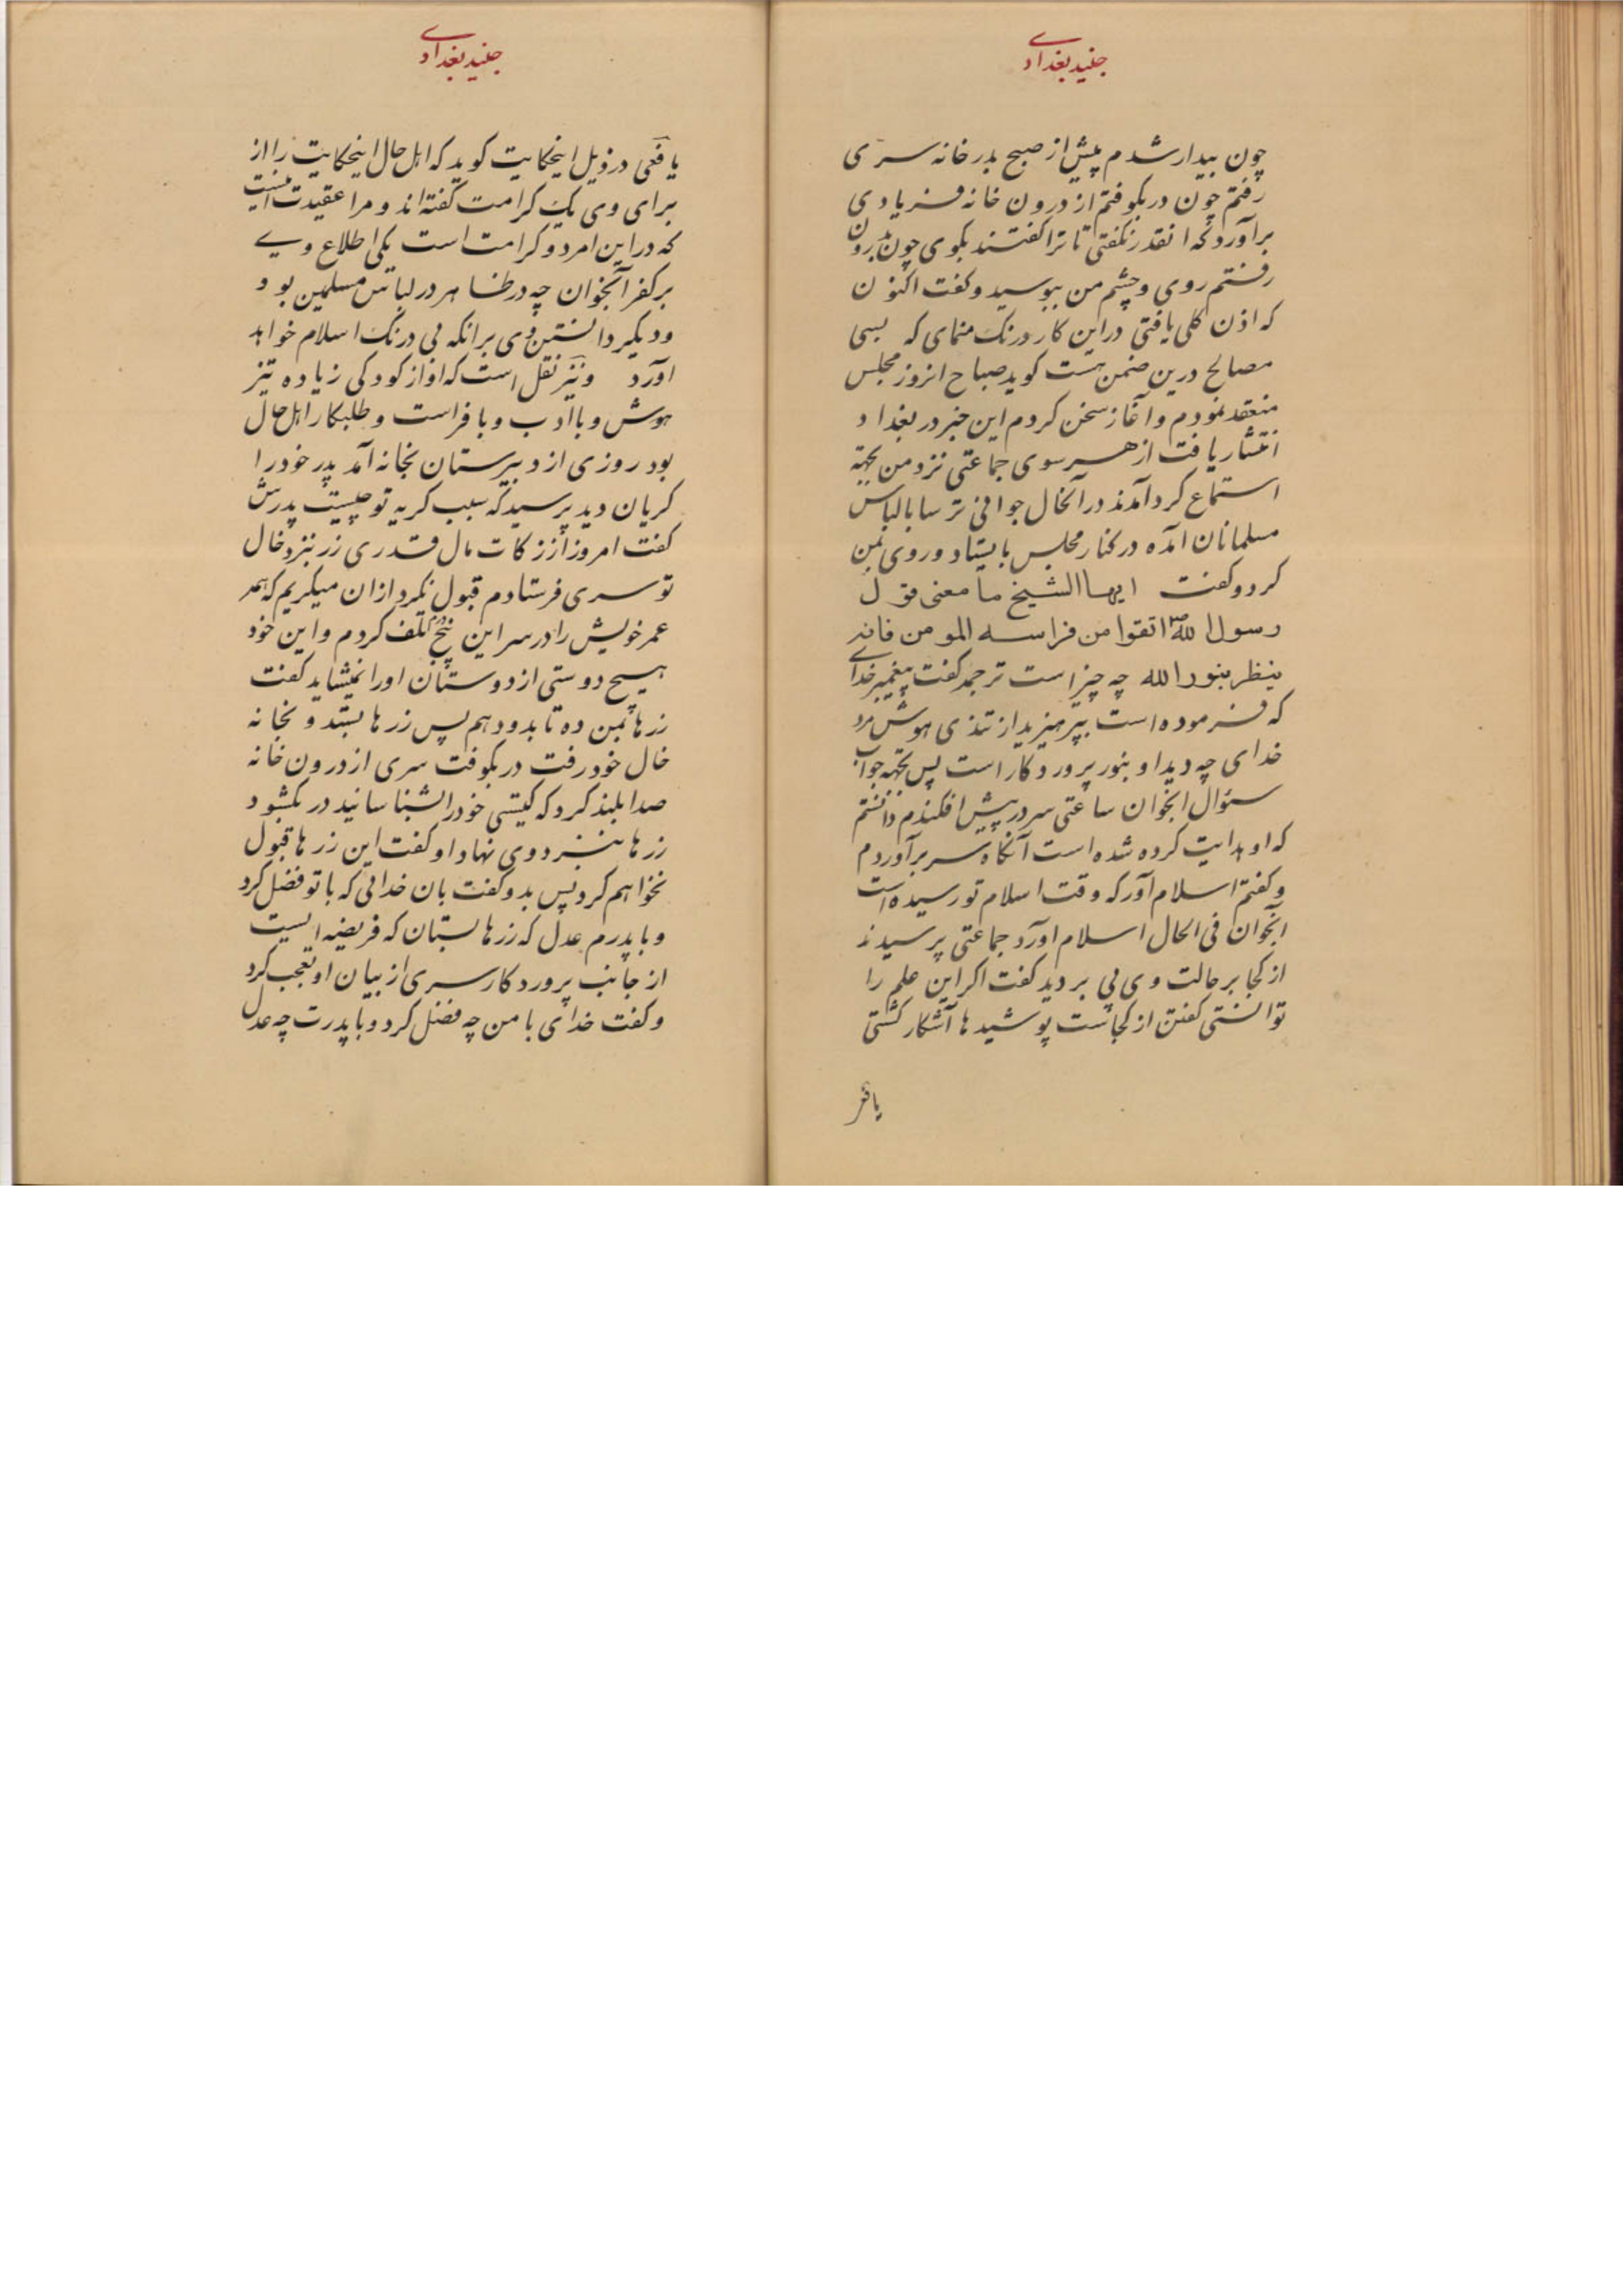 جنید بغدادے
چون بیدار شدم پیش از صبح بدر خانه سری
رفتم چون در بکوفتم از درون خانه فریادی
برآورد که انقدر نکفتی تا ترا کفتند بکوی چون بدرون
رفتم روی و چشم من ببوسید و کفت اکنون
که اذن کلی یافتی در این کار درنک منمای که بسی
مصالح درین ضمن هست کوید صباح انروز مجلس
منعقد نمودم و آغاز سخن کردم این خبر در بغداد
انتشار یافت از هر سوی جماعتی نزد من بجهة
استماع کرد آمدند در آنحال جوانی ترسا با لباس
مسلمانان آمده در کنار مجلس بایستاد و روی بمن
کرد و کفت ایها الشیخ ما معنی قول
رسول الله ص اتقوا من فراسه المومن فانه
ینظر بنور الله چه چیز است ترجمه کفت پیغمبر خدای
که فرموده است بپرهیزید از تندی هوش مرد
خدای چه دید او بنور پرورد کار است پس بجهة جواب
سئوال انجوان ساعتی سر در پیش افکندم دانستم
که او هدایت کرده شده است آنکاه سر برآوردم
و کفتم اسلام آور که وقت اسلام تو رسیده است
آنجوان فی الحال اسلام اورد جماعتی پرسیدند
از کجا بر حالت وی پی بردید کفت اکر این علم را
توانستی کفتن از کجاست پوشیدها آشکار کشتی
جنید بغدادے
یافعی در ذیل اینحکایت کوید که اهل حال اینحکایت را از
برای وی یک کرامت کفته‌اند و مرا عقیدت اینست
که در این امر دو کرامت است یکی اطلاع وے
بر کفر آنجوان چه در ظاهر در لباس مسلمین بود
و دیکر دانستن وی بر انکه بی درنک اسلام خواهد
اورد و نیز نقل است که او از کودکی زیاده تیز
هوش و با ادب و با فراست و طلبکار اهل حال
بود روزی از دبیرستان بخانه آمد پدر خود را
کریان دید پرسید که سبب کریه تو چیست پدرش
کفت امروز از زکات مال قدری زر نزد خال
تو سری فرستادم قبول نکرد از ان میکریم که همه
عمر خویش را در سر این پنج تلف کردم و این خود
هیچ دوستی از دوستان او را نمیشاید کفت
زرها بمن ده تا بدو دهم پس زرها بستد و بخانه
خال خود رفت در بکوفت سری از درون خانه
صدا بلند کرد که کیستی خود را شناسانید در بکشود
زرها نزد وی نهاد او کفت این زرها قبول
نخواهم کرد پس بدو کفت بان خدائی که با تو فضل کرد
و با پدرم عدل که زرها بستان که فریضه ایست
از جانب پرورد کار سری از بیان او تعجب کرد
و کفت خدای با من چه فضل کرد و با پدرت چه عدل